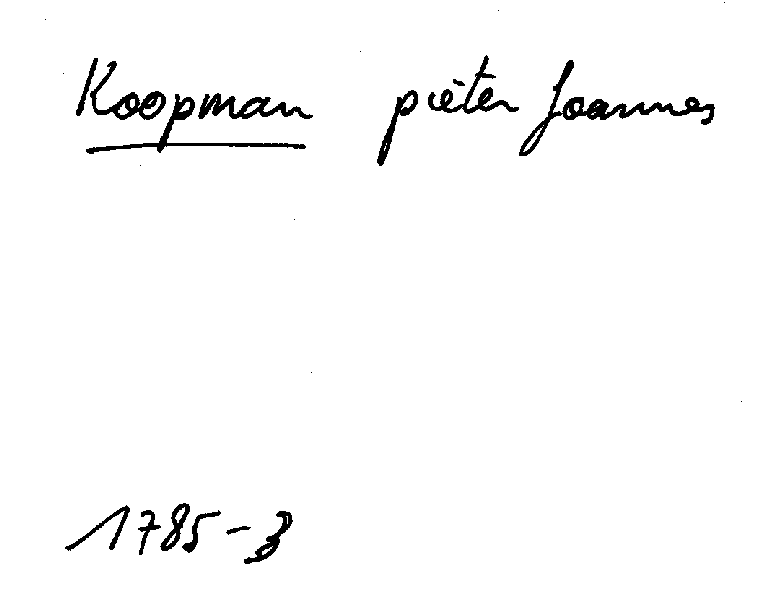 Koopman pieter Joannes
1785-3